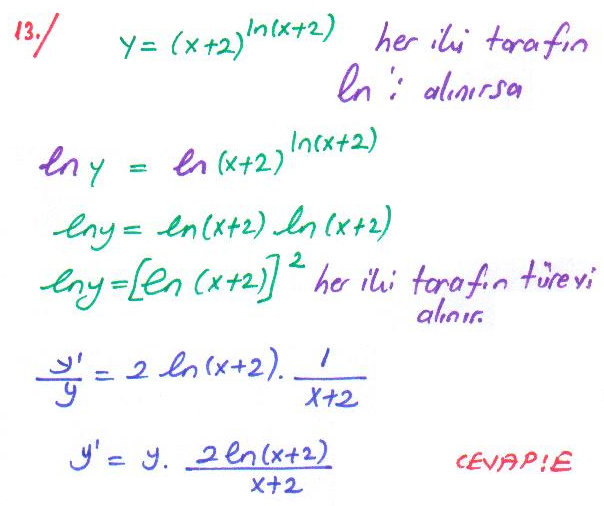 13./ y = (x+2)^ln(x+2) her iki tarafın
ln 'i alınırsa
ln y = ln (x+2)^ln(x+2)
lny = ln(x+2) . ln (x+2)
lny = [ln (x+2)]² her iki tarafın türevi
alınır.
y'/y = 2 ln(x+2) . 1/x+2
y' = y . 2 ln(x+2)/x+2 CEVAP:E